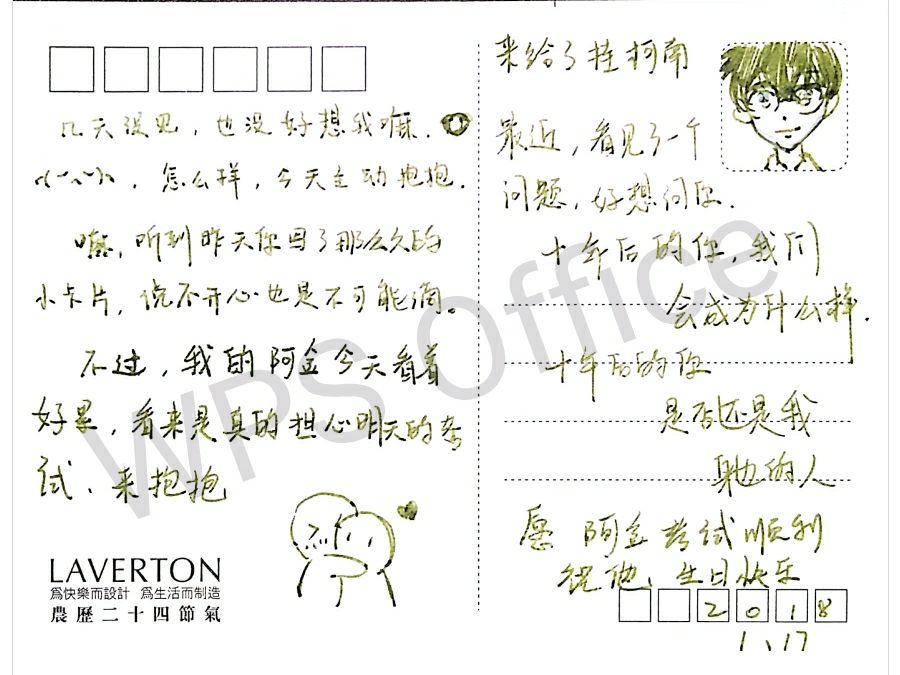 几天没见，也没好想我嘛．
，怎么样，今天主动抱抱．
嗯，听到昨天你因了那么久的
小卡片，说不开心也是不可能滴。
不过，我的阿金今天看着
好累，看来是真的担心明天的考
试．来抱抱
LAVERTON
為快樂而設計 為生活而制造
農歷二十四節氣
来给了挂柯南
最近，看见了一个
问题，好想问你．
十年后的你，我们
会成为什么样．
十年后的你
是否还是我
身边的人
愿 阿金考试顺利
祝他、生日快乐
2018
1、17
WPS Office